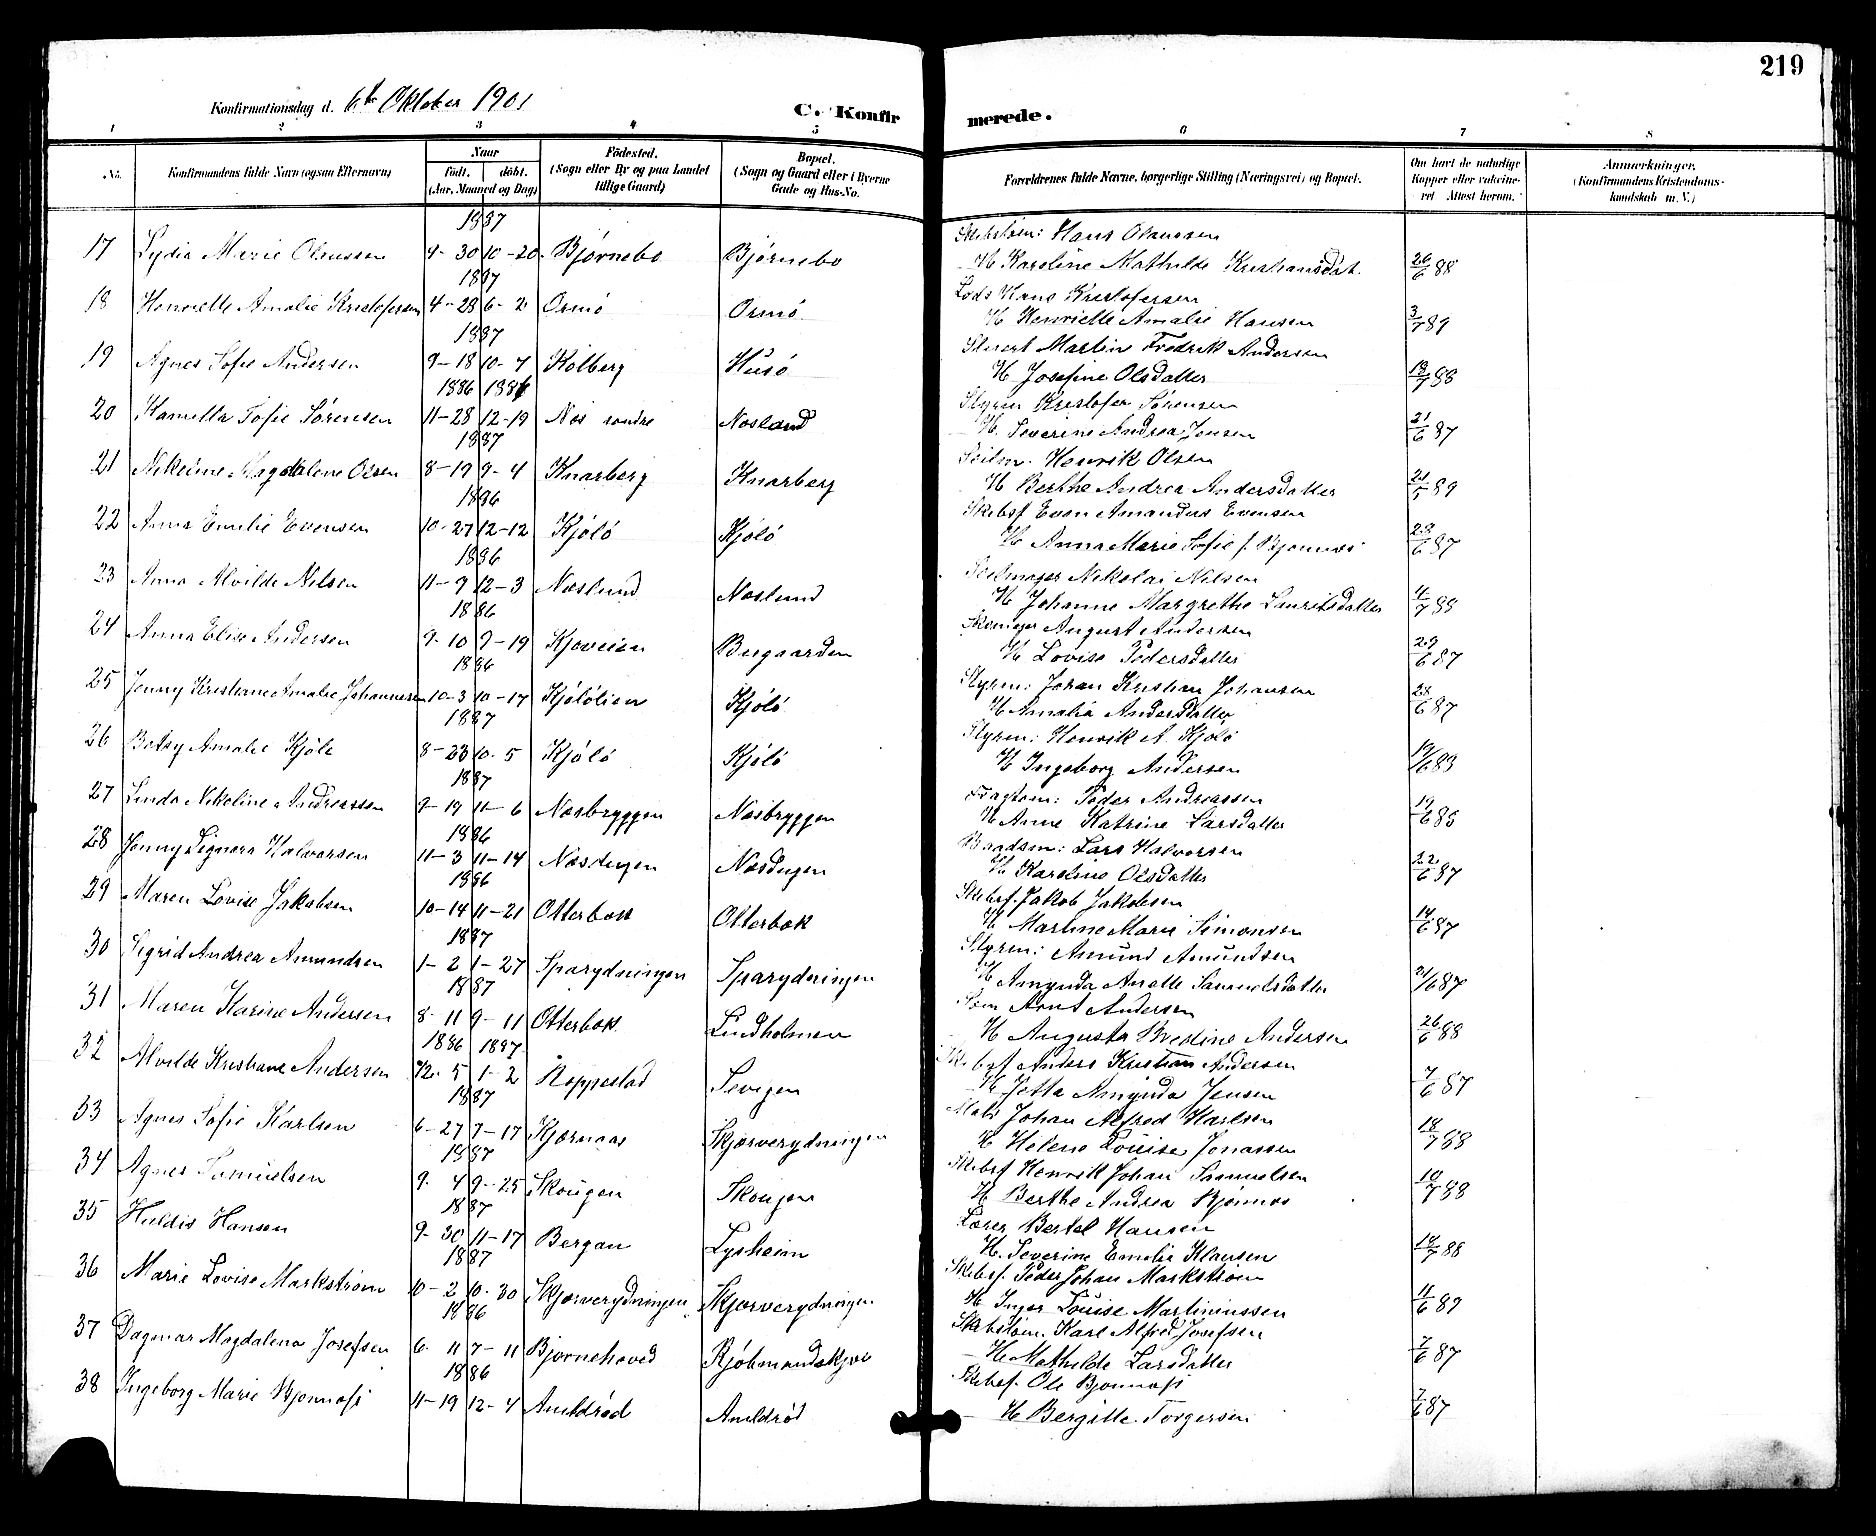 219
Konfirmationsdag d. 6te Oktober 1901
C. Konfirmerede.
1 2 3 4 5 6 7 8
No.
Konfirmandens fulde Navn (ogsaa Efternavn)
Naar
födt. döbt.
(Aar, Maaned og Dag)
Födested.
(Sogn eller By og paa Landet
tillige Gaard)
Bopæl.
(Sogn og Gaard eller i Byerne
Gade og Hus-No.
Forældrenes fulde Navne, borgerlige Stilling (Næringsvei) og Bopæl.
Om havt de naturlige
Kopper eller vakcine-
ret. Attest herom.
Anmærkninger.
(Konfirmandens Kristendoms-
kundskab m. V.)
1887
17 Lydia Marie Olaussen 9-30 10-20 Bjørnebo Bjørnebo Skibstøm: Hans Olaussen
H Karoline Mathilde Kristiansdat. 26/6 88
1887
18 Henriette Amalie Kristofersen 4-28 6-2 Ormø Ormø Lods Hans Kristofersen
H Henriette Amalie Hansen 3/7 89
1887
19 Agnes Sofie Andersen 9-18 10-7 Kolberg Husø Stuert Martin Fredrik Andersen
H Josefine Olsdatter 18/7 88
1886 1886
20 Kamilla Sofie Sørensen 11-28 12-19 Nes søndre Nesland Styrm Kristofer Sørensen
H. Severine Andrea Jensen 21/6 87
1887
21 Nikoline Magdalene Olsen 8-19 9-4 Knarberg Knarberg Seilm. Henrik Olsen
H Berthe Andrea Andersdatter 21/5 89
1886
22 Anna Emilie Evensen 10-27 12-12 Kjølø Kjølø Skibsf. Even Amandus Evensen
H Anna Marie Sofie f. Bjønnes 23/6 87
1886
23 Anna Alvilde Nilsen 11-9 12-3 Næslund Næslund Seilmager Nikolai Nilsen
H Johanne Margrethe Lauritsdatter 4/7 88
1886
24 Anna Elise Andersen 9-10 9-19 Kjøveien Bugaarden August Andersen
H Lovise Pedersdatter 23/6 87
1886
25 Jenny Kristiane Amalie Johannesen 10-3 10-17 Kjølølien Kjølø Styrm: Johan Kristian Johansen
H Amalia Andersdatter 28/6 87
1887
26 Betsy Amalie Kjølø 8-23 10-5 Kjølø Kjølø Styrm: Henrik A. Kjølø
H Ingeborg Andersen 19/6 83
1887
27 Linda Nikoline Andreassen 9-19 11-6 Næsbryggen Næsbryggen Fragtem: Peder Andreassen
H Anne Katrine Larsdatter 19/6 85
1886
28 Jenny Signora Halvorsen 11-3 11-14 Næsdugen Næsdugen Baadsm: Lars Halvorsen
H Karoline Olsdatter 22/6 87
1886
29 Maren Lovise Jakobsen 10-14 11-21 Otterbæk Otterbæk Skibsf. Jakob Jakobsen
H Martine Marie Simonsen 14/6 87
1887
30 Sigrid Andrea Amundsen 1-2 1-27 Sparydningen Sparydningen Styrm: Amund Amundsen
H Amynda Anette Samuelsdatter 21/6 87
1887
31 Maren Karine Andersen 8-11 9-11 Otterbæk Lindholmen Søm Arnt Andersen
H Augusta Bredine Andersen 26/6 88
1886 1887
32 Alvilde Kristiane Andersen 12-5 1-2 Roppestad Sevigen Skibsf Anders Kristian Andersen
H Jetta Amynda Jensen 7/6 87
1887
33 Agnes Sofie Karlsen 6-27 7-17 Kjærnaas Skjærverydningen Matr Johan Alfred Karlsen
H Helene Louise Jonassen 18/7 88
1887
34 Agnes Samuelsen 9-4 9-25 Skougen Skougen Skibsf Henrik Johan Samuelsen
H Berthe Andrea Bjønnes 10/7 88
1887
35 Huldis Hansen 9-30 11-17 Bergan Lysheim Lærer Bertel Hansen
H. Severine Emelie Klausen 18/7 88
1887
36 Marie Lovise Markstrøm 10-2 10-30 Skjærverydningen Skjærverydningen Skibsf. Peder Johan Markstrøm
H Inger Louise Martiniussen 11/6 89
1886
37 Dagmar Magdalena Josefsen 6-11 7-11 Bjørnehoved Kjøbmandskjær Skibstøm. Karl Alfred Josefsen
H Mathilde Larsdatter 7/6 87
1886
38 Ingeborg Marie Bjønness 11-19 12-4 Amldrød Amldrød Skibsf. Ole Bjønness
H Bergitte Torgersen 7/6 87